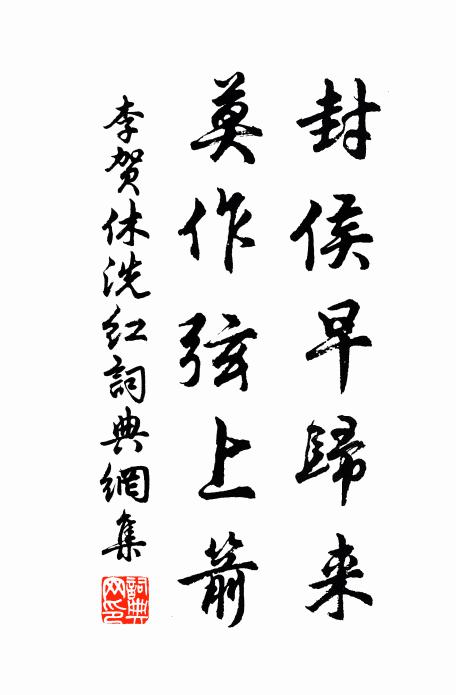 封侯早歸来
莫作弦上箭
李贺休洗红詞典網集
詞典網印